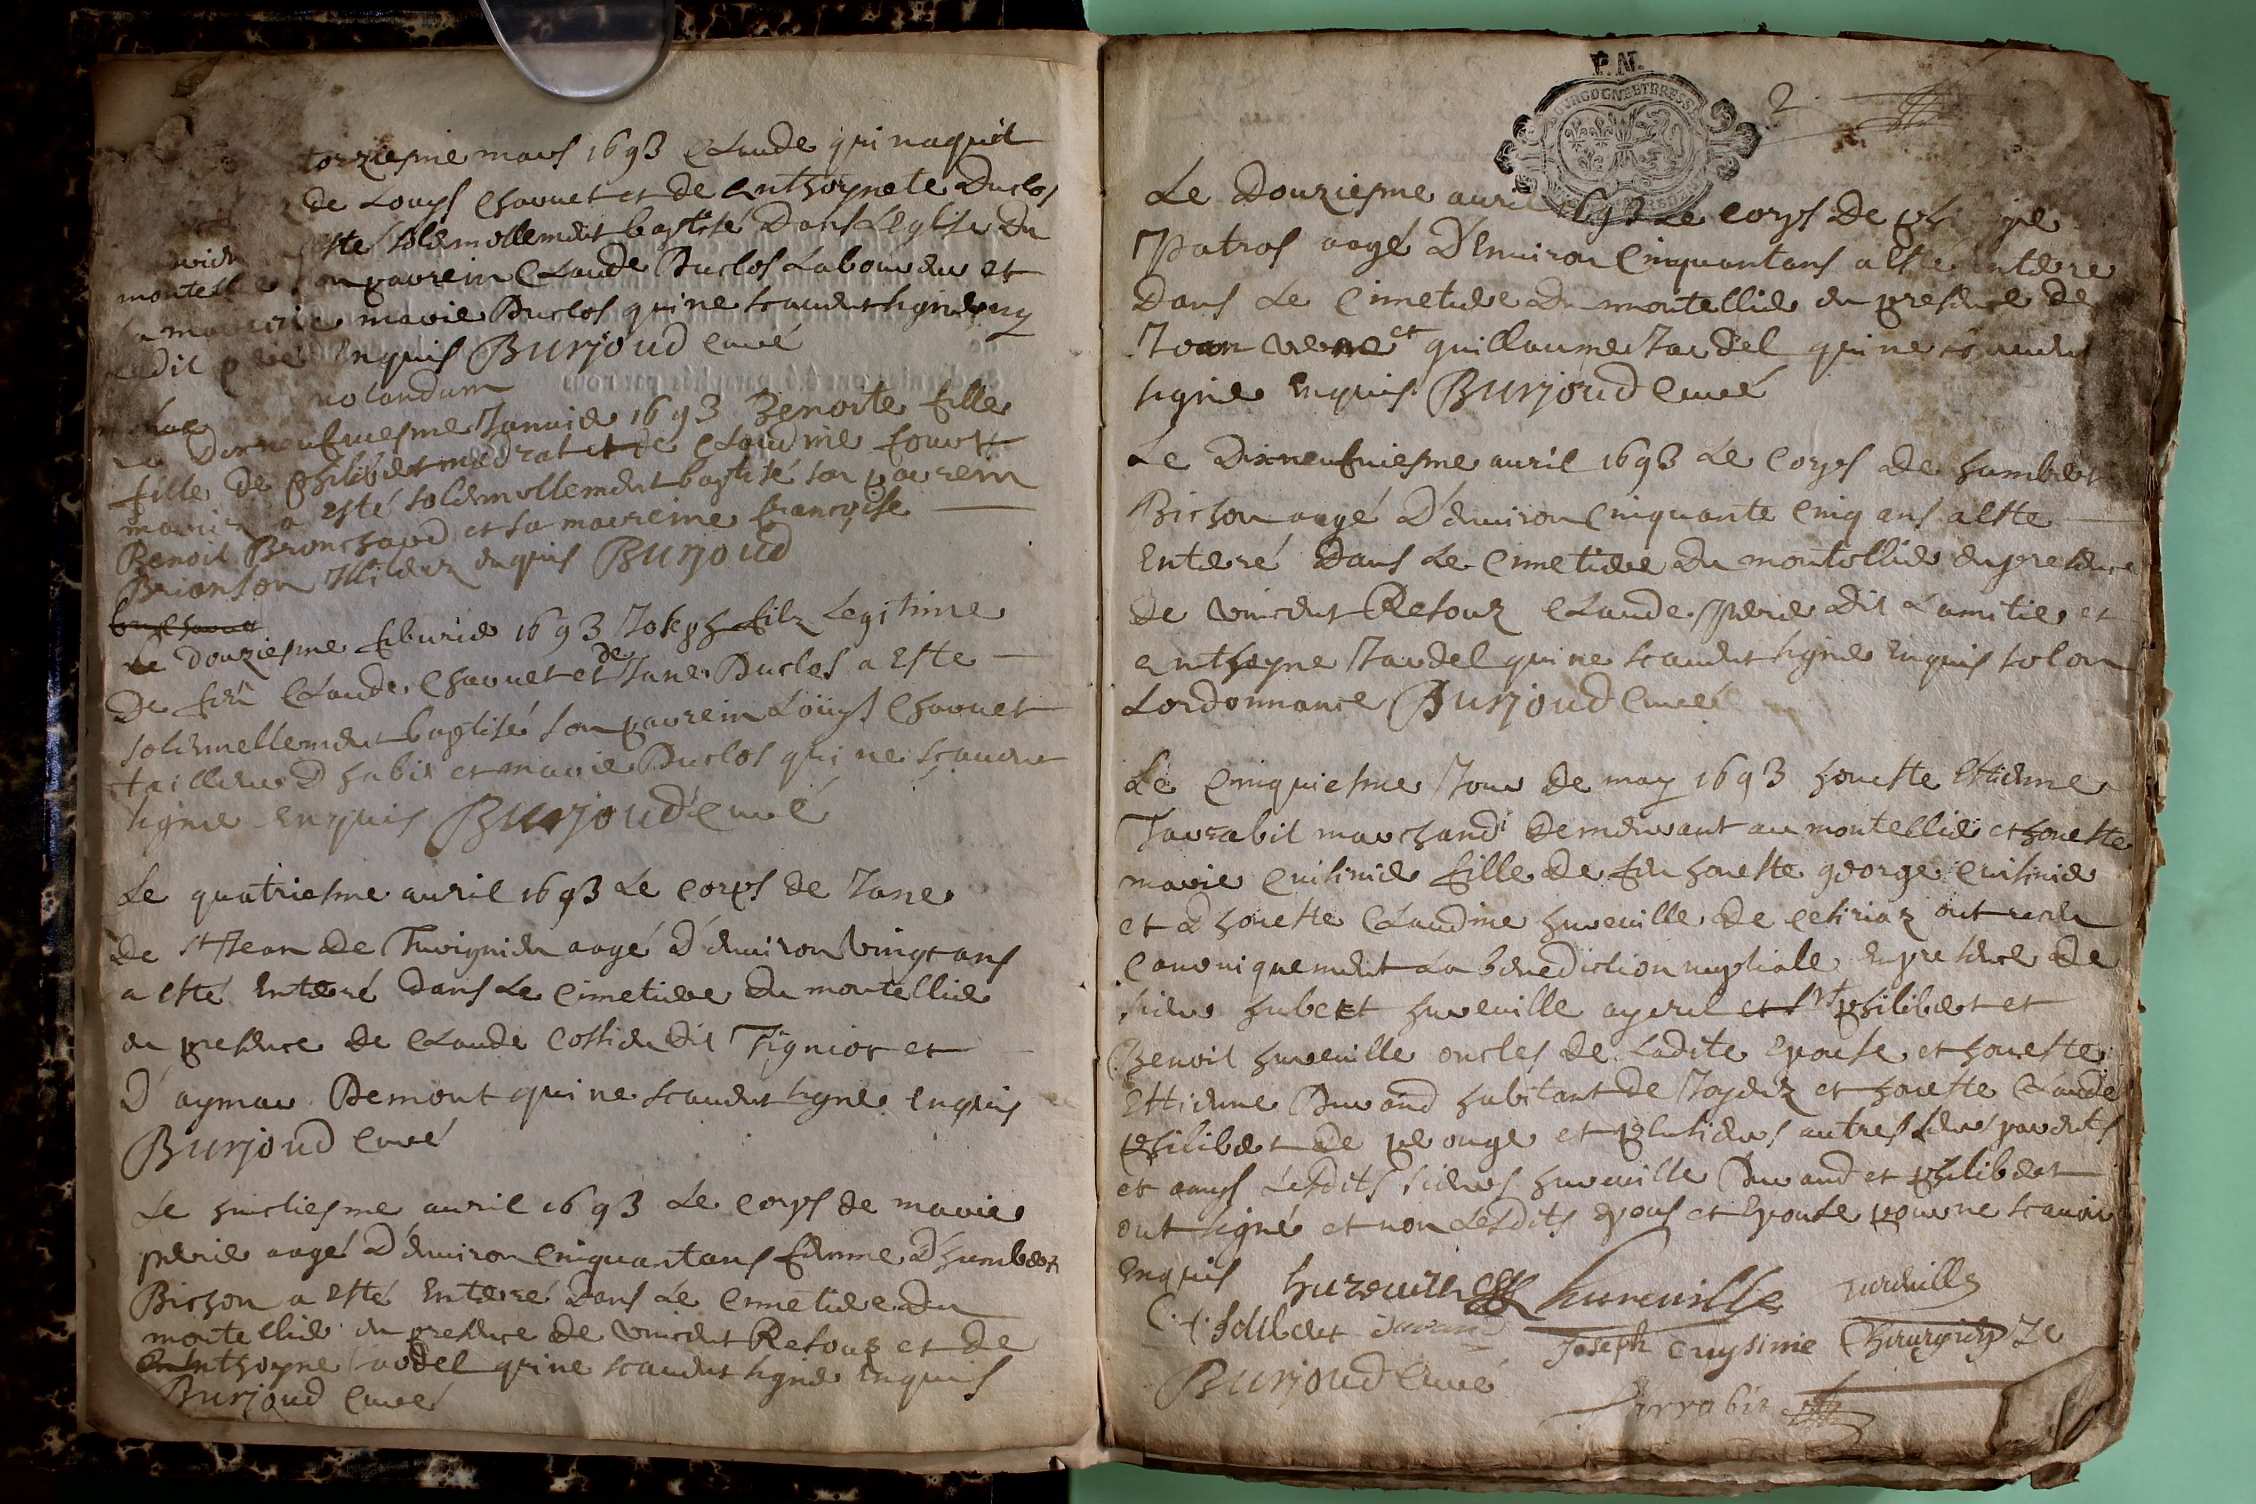 torziesme mars 1693 Claude qui naquit
de Louys Chavuet et de Enthoynete Duclos
esté solemnellement baptisé Dans Leglise du
montellier son parrein Claude Duclos Laboureur et
sa marreine marie Duclos qui ne scavent signer ny
Ledit père Enquis Burjoud Curé
notandum
Le Dixneufviesme Janvier 1693 Benoite fille
fille de philibert et de Claudine
a esté solemnellement baptisé son parrein
Benoit Bronchard et sa marreine françoise
Brianson enquis Burjoud
Le Douziesme febvrier 1693 Joseph filz Legitime
De feu Claude Chavuet et de Jane Duclos a este
solemnellement baptisé son parrein Loüys Chavuet
tailleur D habit et marie Duclos qui ne scavent
signer Enquis Burjoud Curé
Le quatriesme avril 1693 Le Corps de Jane
de st Jean de Turignieu aagé D'environ vingt ans
a esté Enterré Dans Le Cimetiere Du montellier
en presence de Claude Cottier dit Tignior et
D'aymar Demont qui ne scavent signer Enquis
Burjoud Curé
Le huictiesme avril 1693 Le Corps de marie
perie aagé D'environ Cinquantans femme D'humbert
Bichon a esté Enterré Dans Le Cimetiere du
montellier en presence de vincent Retouz et de
Enthoyne Jardel qui ne scavent signer Enquis
Burjoud Curé
P.N.
BOURGOGNE ET BRESSE
2
Le Douziesme avril 1693 Le corps De
Patras aagé D'Environ Cinquantans a Esté Enterre
Dans Le Cimetiere Du montellier en presence de
Jean et guillaume Jardel qui ne scavent
signer Enquis Burjoud Curé
Le Dixneufviesme avril 1693 Le Corps De humbert
Bichon aagé D'environ Cinquante Cinq ans a Este
Enterré Dans Le Cimetiere Du montellier en presence
De vincent Retouz Claude perie Dit Lamitie et
Enthoyne Jardel qui ne scavent signer Enquis selon
Lordonnance Burjoud Curé
Le Cinquiesme Jour De may 1693 honeste Ettienne
Tarrabit marchand Demeurant au montellier et honeste
marie Cuisinier fille de feu honeste george Cuisinier
et d honeste Claudine hureuille De Cesiriaz ont receu
Canoniquement La benediction nuptiale En presence De
sieur hubert hureuille ayeul et sr philibert et
Benoit hureuille oncles De Ladite Epouse et honeste
Ettienne Durand habitant de Joyeux et honeste Claude
philibert De perouge et plusieurs autres Leurs parents
et amys Lesdits sieurs hureuille Durand et philibert
ont signé et non Lesdits Epous et Epouse pour ne scavoir
Enquis hureuille hureuille hureuille
C. philibert Durand Joseph Cuysinie Chirurgien
Burjoud Curé
Tarrabit